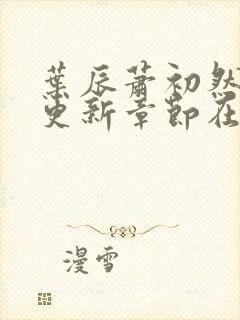 葉辰蕭初然
更新章節在
漫雪